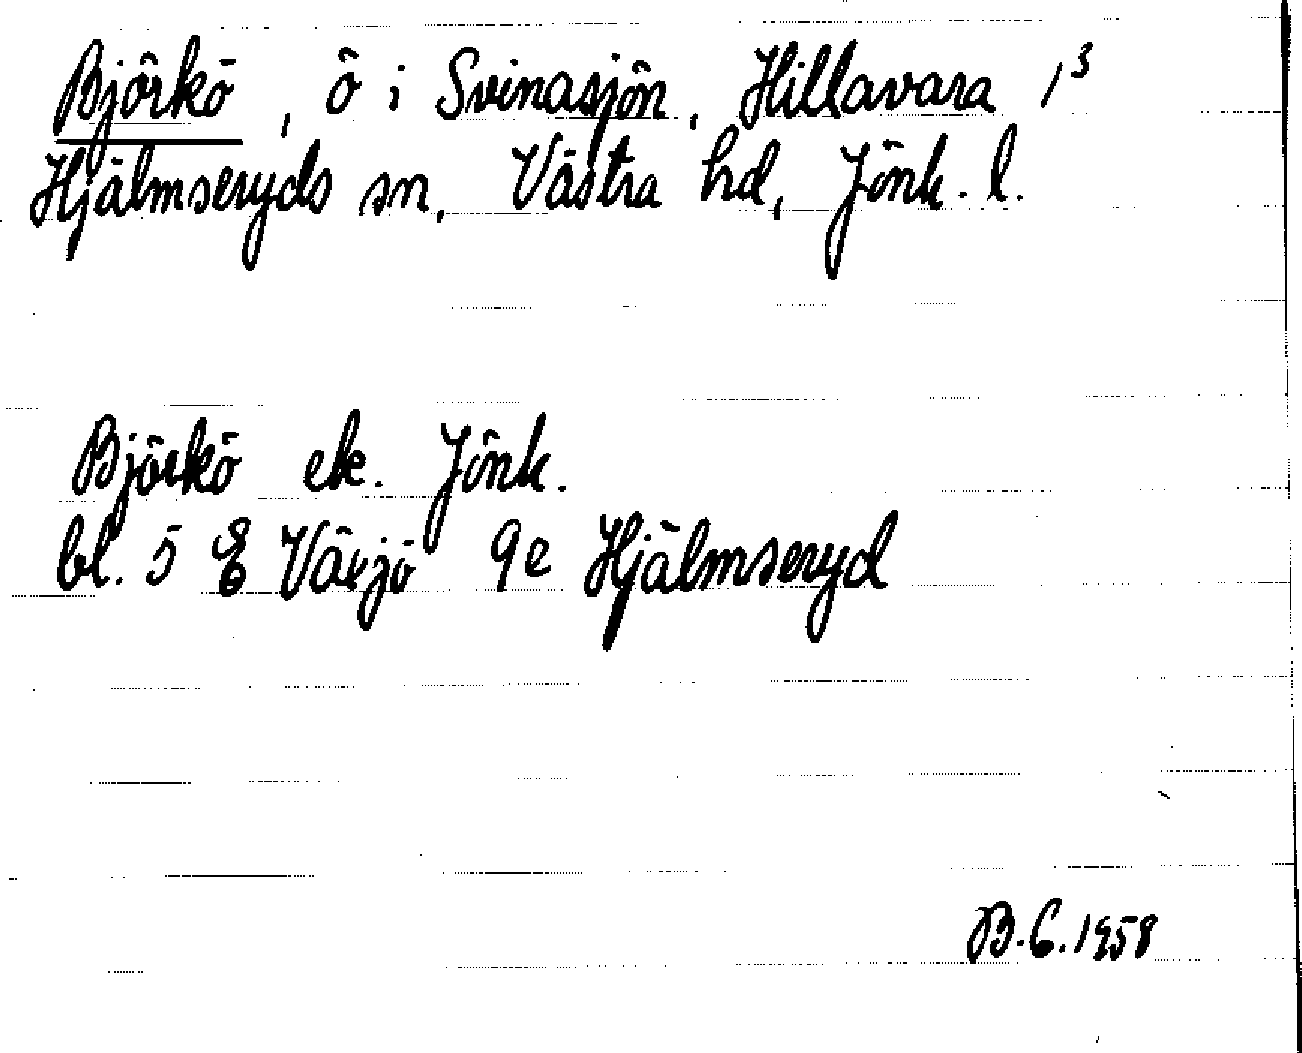 Björkö, ö i Svinasjön, Hillavara 1³
Hjälmseryds sn, Västra hd, Jönk. l.
Björkö ek. Jönk.
bl. 5 E Växjö 9e Hjälmseryd
B.C. 1958